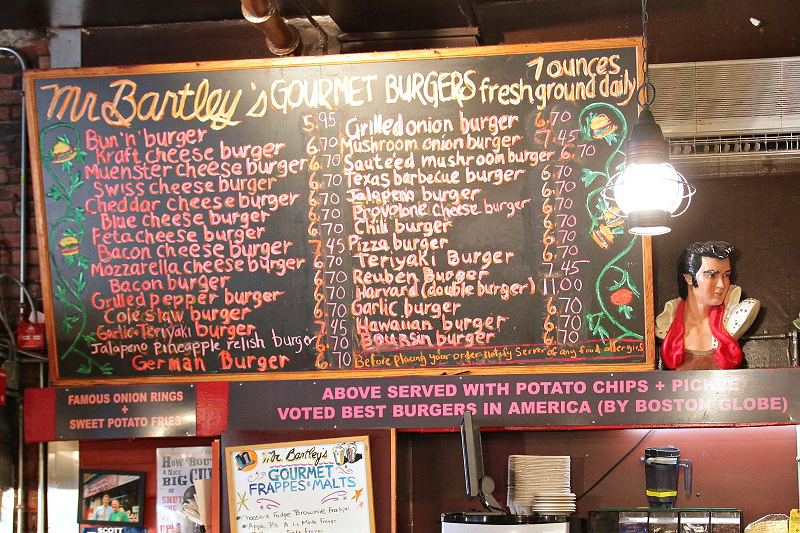 Mr Bartley's GOURMET BURGERS
7 ounces
fresh ground daily
Bun 'n' burger 5.95
Kraft cheese burger 6.70
Muenster cheese burger 6.70
Swiss cheese burger 6.70
Cheddar cheese burger 6.70
Blue cheese burger 6.70
Feta cheese burger 6.70
Bacon cheese burger 7.45
Mozzarella cheese burger 6.70
Bacon burger 6.70
Grilled pepper burger 6.70
Coleslaw burger 6.70
Garlic Teriyaki burger 7.45
Jalapeno pineapple relish burger 6.70
German Burger 6.70
Grilled onion burger 6.70
Mushroom onion burger 7.45
Sauteed mushroom burger 6.70
Texas barbecue burger 6.70
Jalapeno burger 6.70
Provolone cheese burger 6.70
Chili burger 6.70
Pizza burger 6.70
Teriyaki Burger 6.70
Reuben Burger 7.45
Harvard (double burger) 11.00
Garlic burger 6.70
Hawaiian burger 6.70
Boursin burger 6.70
Before placing your order notify Server of any food allergies
FAMOUS ONION RINGS
+
SWEET POTATO FRIES
ABOVE SERVED WITH POTATO CHIPS + PICKLE
VOTED BEST BURGERS IN AMERICA (BY BOSTON GLOBE)
Mr. Bartley's
GOURMET
FRAPPES & MALTS
Chocolate Fudge Brownie Frappe
Apple Pie A La Mode Frappe
HOW 'BOUT
A NICE
BIG CUP
OF
SCOTT